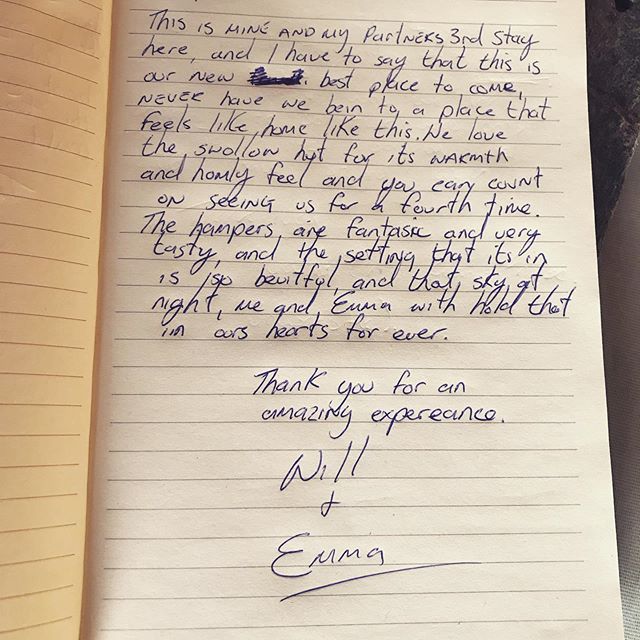 This is mine and my Partners 3rd stay
here, and I have to say that this is
our new best place to come,
never have we bein to a place that
feels like home like this. We love
the swollow hut for its warmth
and homly feel and you can count
on seeing us for a fourth time.
The hampers are fantasic and very
tasty, and the setting that its in
is so beuitful, and that sky at
night, me and Emma with hold that
in ours hearts for ever.
Thank you for an
amazing expereance.
Will
+
Emma